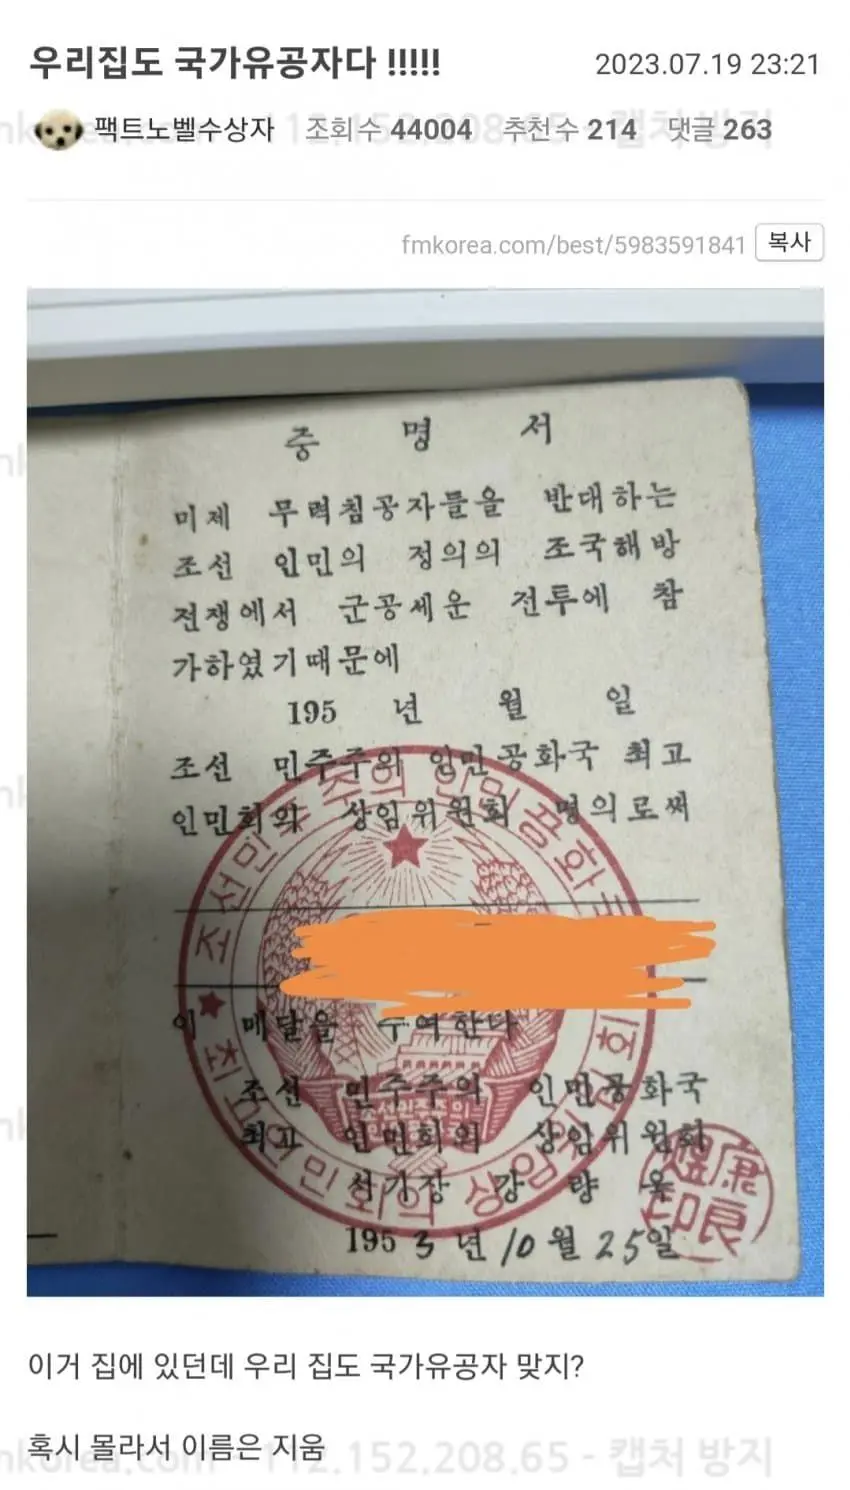 우리집도 국가유공자다 !!!!!
2023.07.19 23:21
팩트노벨수상자 조회수 44004 추천수 214 댓글 263
fmkorea.com/best/5983591841 복사
증 명 서
미제 무력침공자들을 반대하는
조선 인민의 정의의 조국해방
전쟁에서 군공세운 전투에 참
가하였기때문에
195 년 월 일
조선 민주주의 인민공화국 최고
인민회의 상임위원회 명의로써
이 메달을 수여한다
조선 민주주의 인민공화국
최고 인민회의 상임위원회
서기장 강 량 욱
1953년 10월 25일
조선민주주의인민공화국
최고인민회의 상임위원회
康良煜印
이거 집에 있던데 우리 집도 국가유공자 맞지?
혹시 몰라서 이름은 지움
112.152.208.65 - 캡처 방지